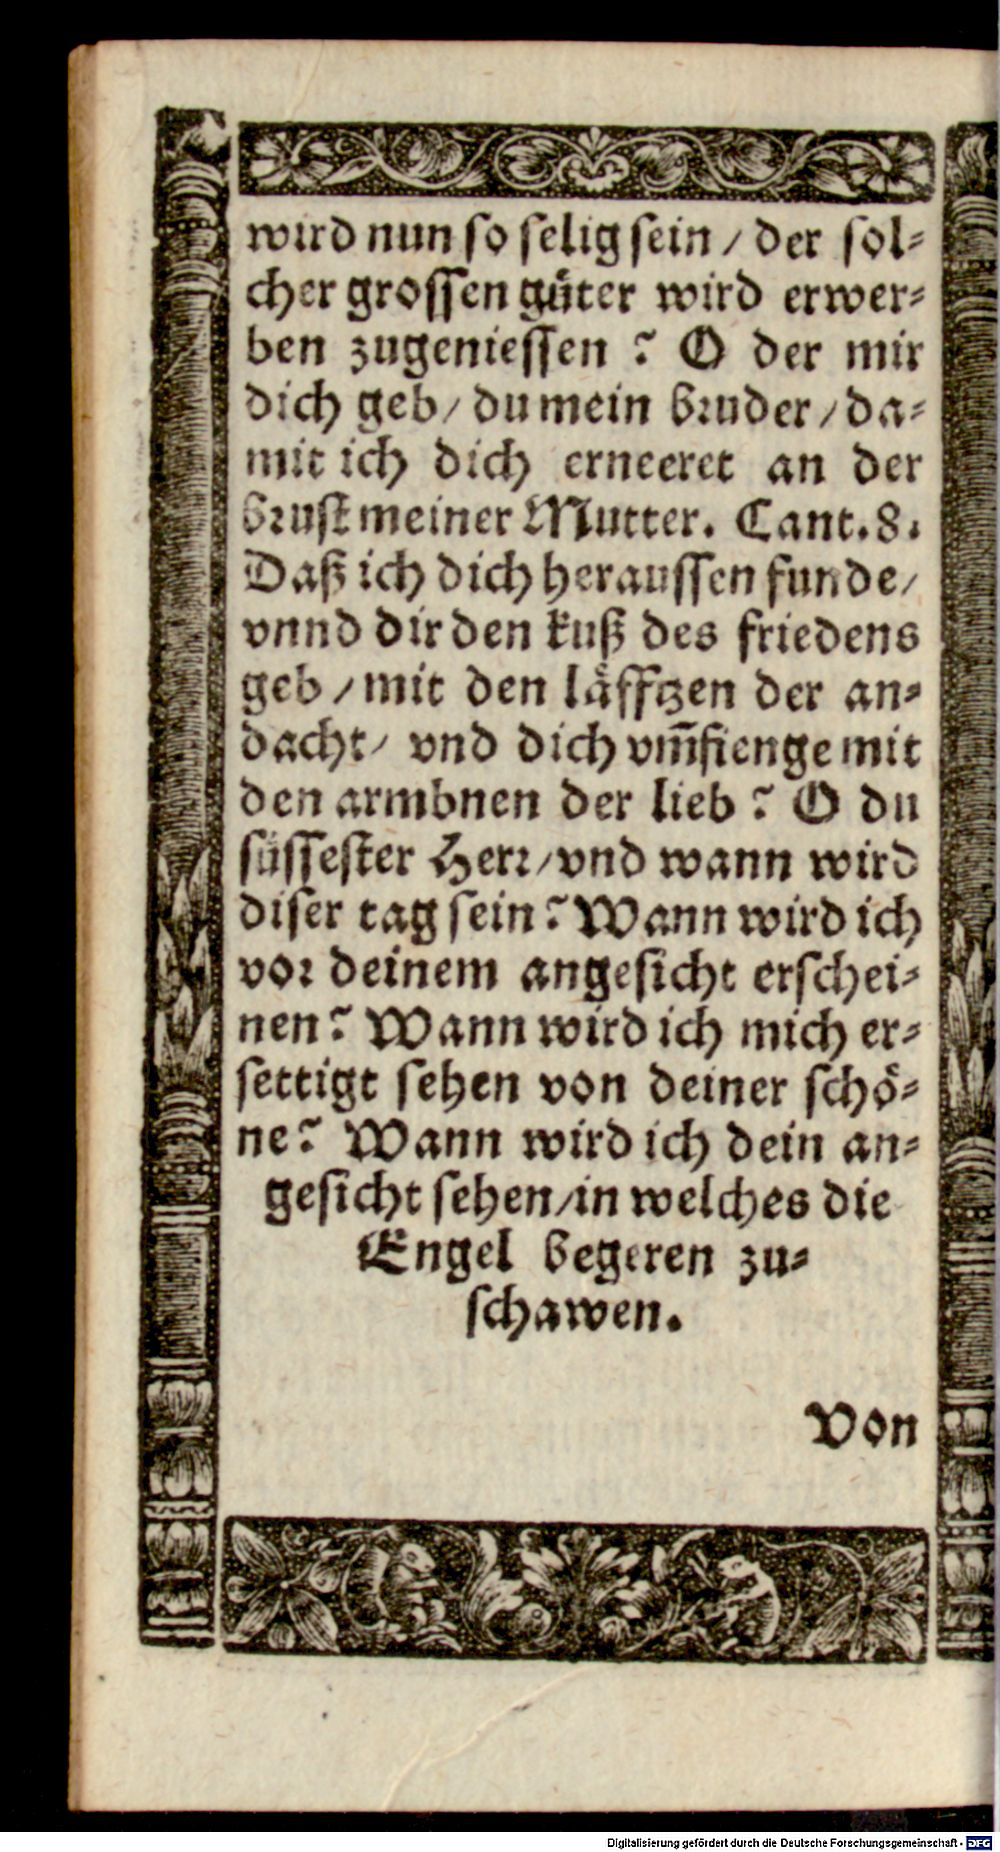 wird nun so selig sein / der sol-
cher grossen gůter wird erwer-
ben zugeniessen ? O der mir
dich geb / du mein bruder / da-
mit ich dich erneeret an der
brust meiner Mutter. Cant. 8.
Daß ich dich heraussen funde /
vnnd dir den kuß des friedens
geb / mit den läfftzen der an-
dacht / vnd dich vm̃fienge mit
den armbnen der lieb ? O du
süssester Herr / vnd wann wird
diser tag sein ? Wann wird ich
vor deinem angesicht erschei-
nen ? Wann wird ich mich er-
settigt sehen von deiner schö-
ne ? Wann wird ich dein an-
gesicht sehen / in welches die
Engel begeren zu-
schawen.
Von
Digitalisierung gefördert durch die Deutsche Forschungsgemeinschaft - DFG